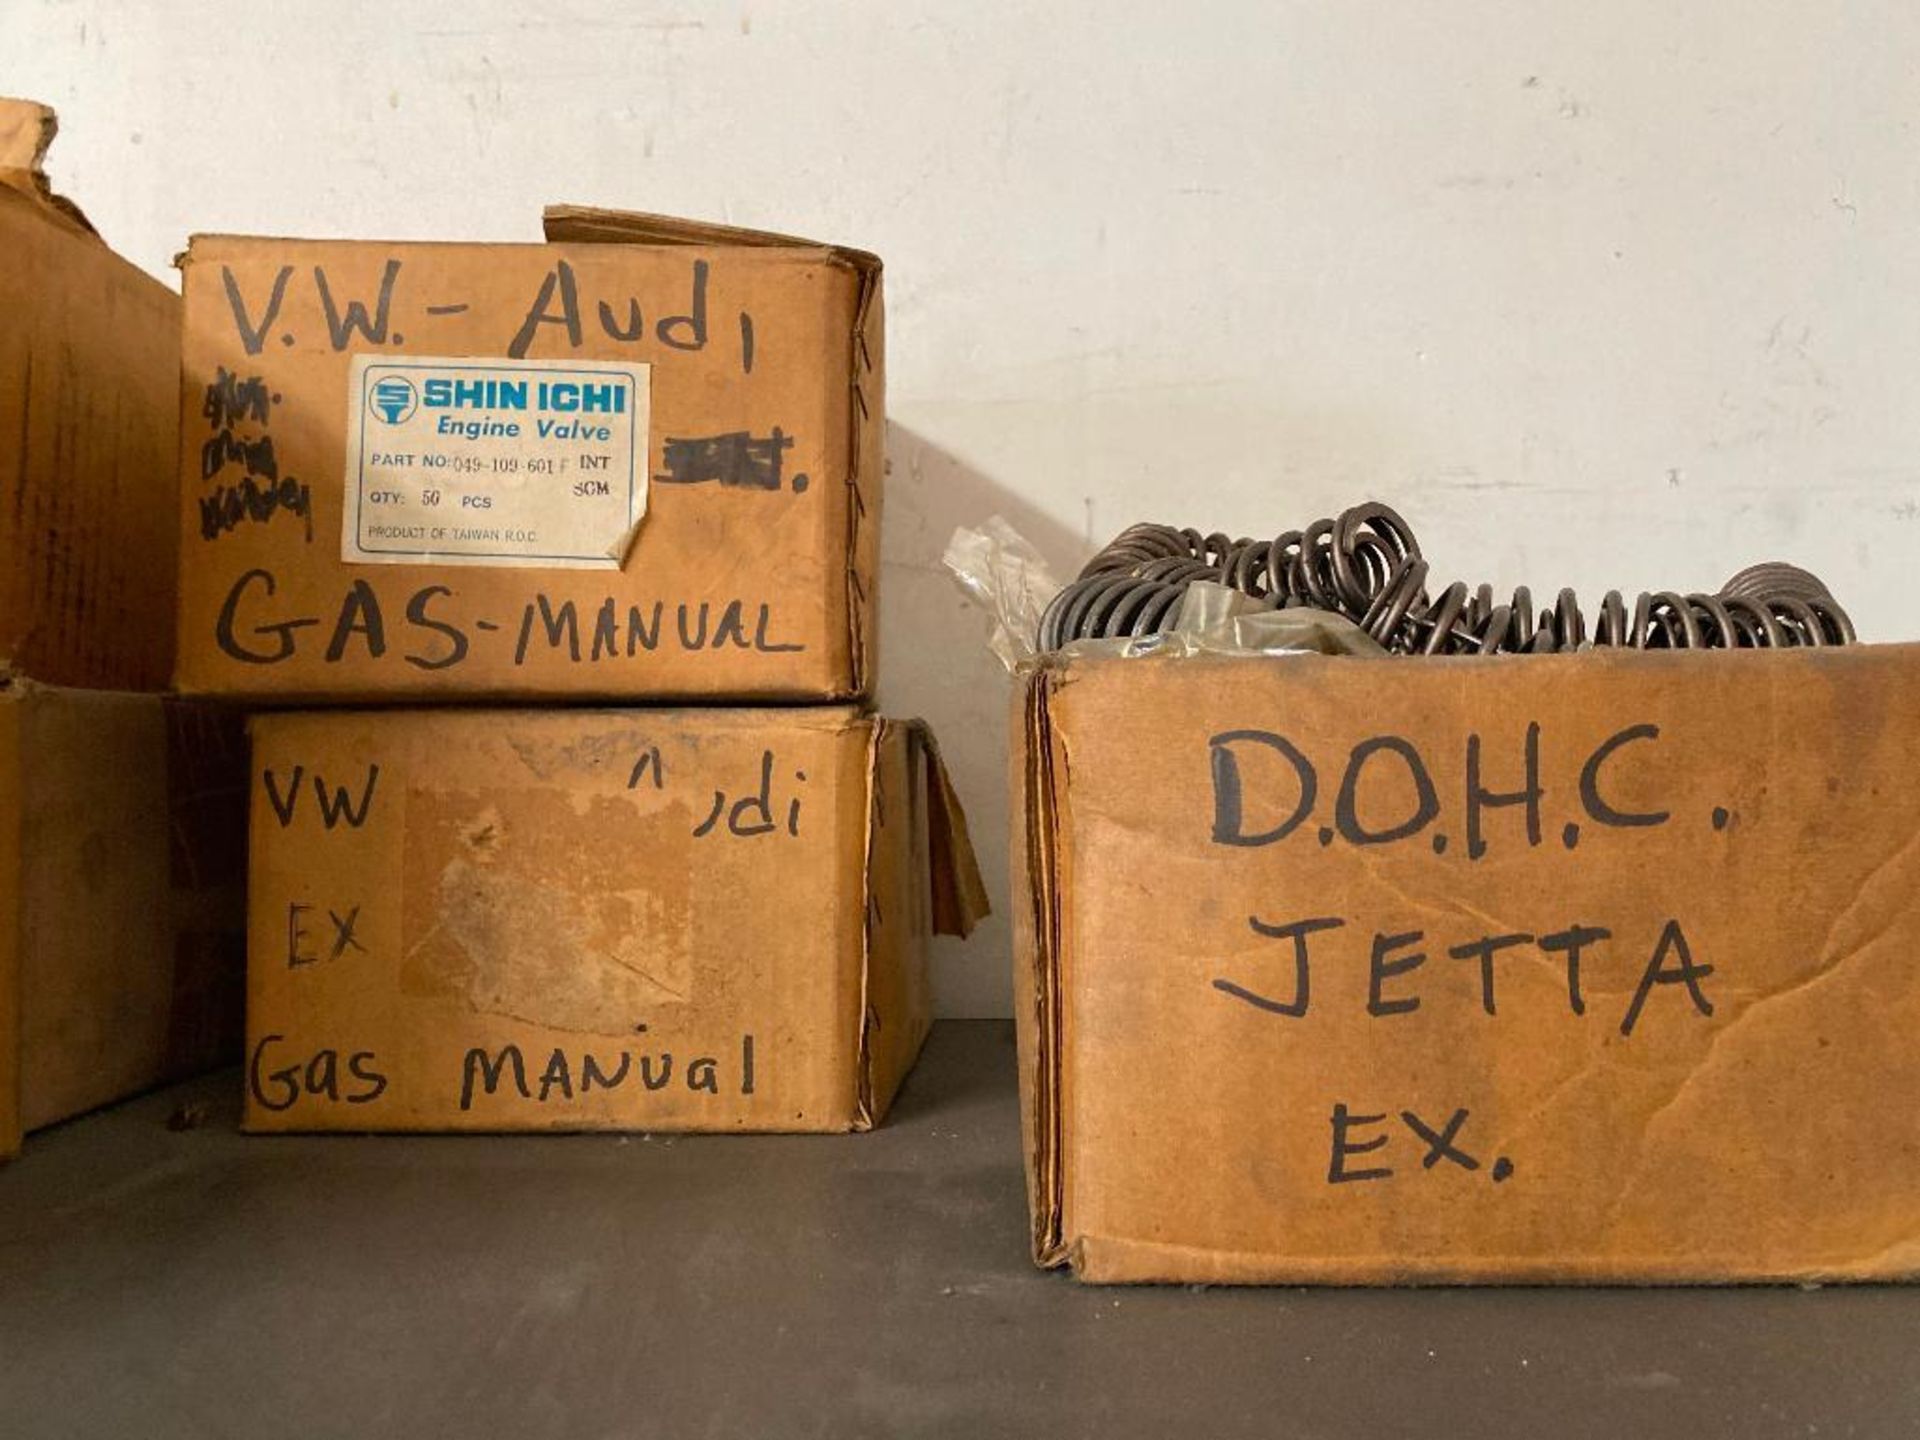 V.W.- Audi
SHIN ICHI
Engine Valve
PART NO: 049-109-601 F INT
SGM
QTY: 50 PCS
PRODUCT OF TAIWAN R.O.C.
GAS-MANUAL
VW udi
EX
Gas MANUal
D.O.H.C.
JETTA
EX.